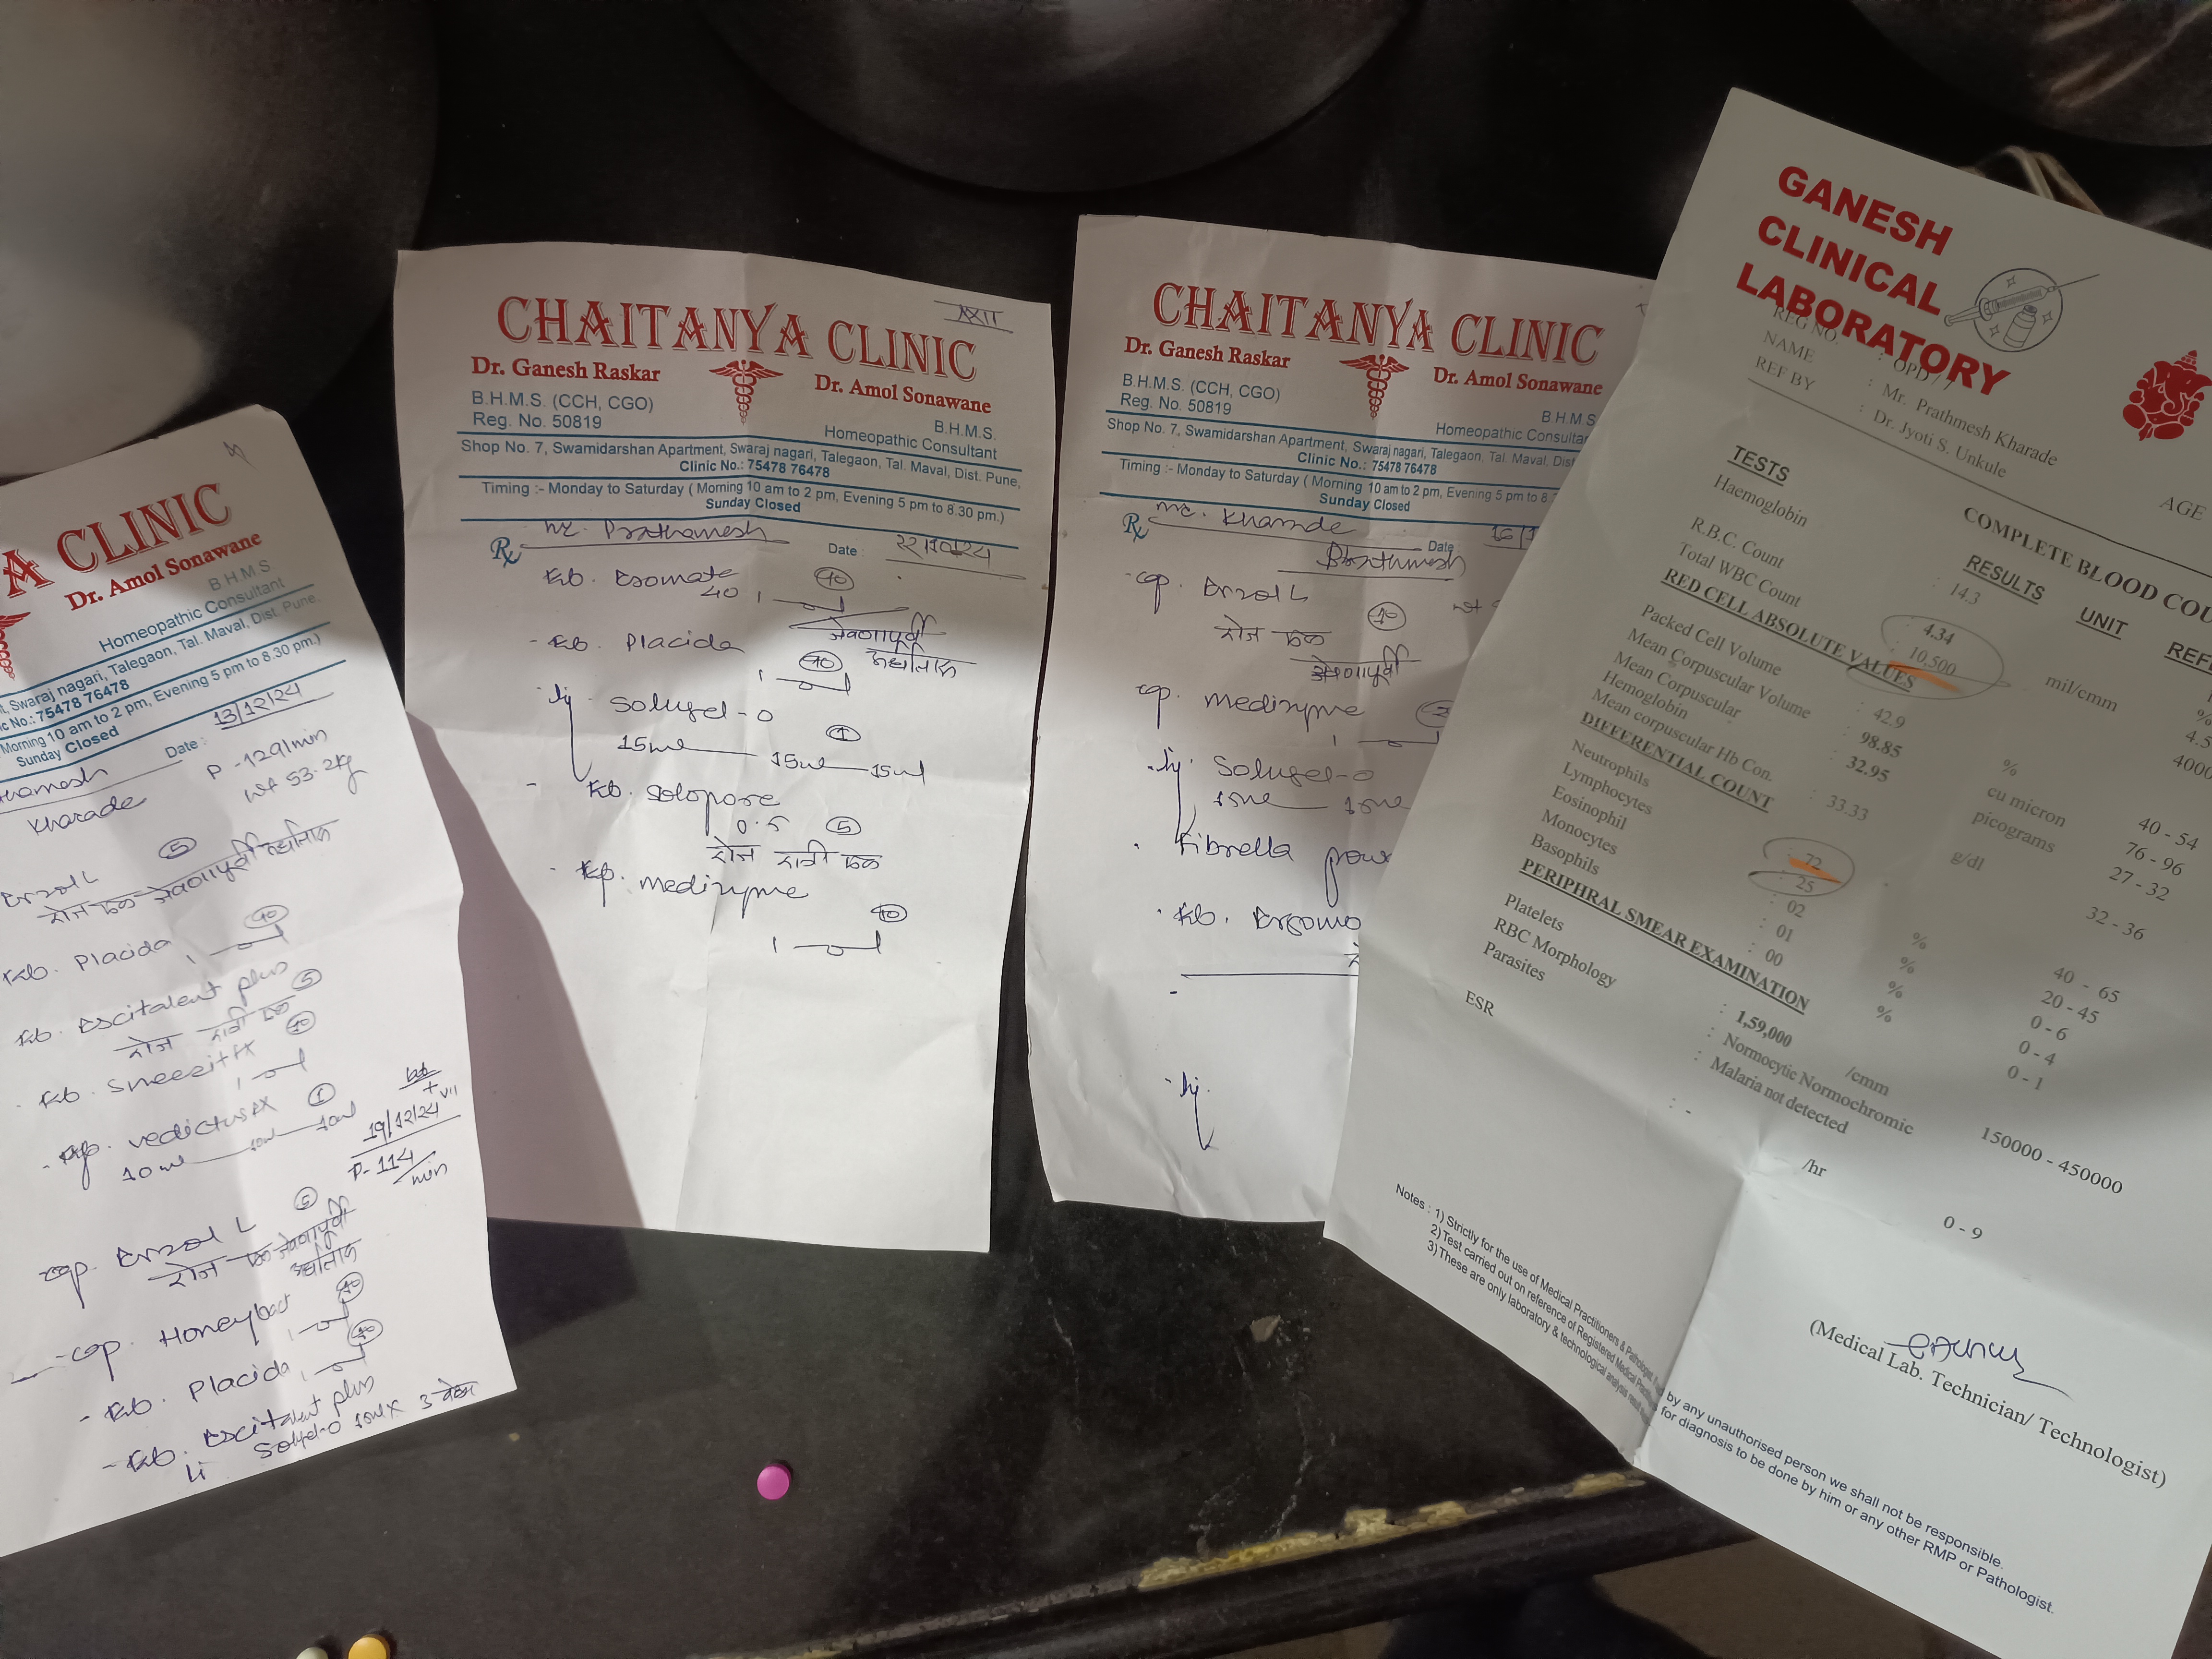 A CLINIC
Dr. Amol Sonawane
B H M S
Homeopathic Consultant
t, Swaraj nagari, Talegaon, Tal. Maval, Dist. Pune,
c No.: 75478 76478
Morning 10 am to 2 pm, Evening 5 pm to 8.30 pm.)
Sunday Closed
Date : 13/12/24
thamesh
Kharade
P - 129/min
wt 53.2kg
Enzol L
5
रोज एक जेवणापूर्वी
Tab. Placida
10
1
Tab. Escitalent plus
5
रोज रात्री एक
Tab. Sneezit
10
1
vedictus
1
10ml 10ml 10ml
19/12/24
P- 114/min
cap. Enzol L
5
रोज एक जेवणापूर्वी
- cap. Honeybact
10
1
- Tab. Placida
10
1
- Tab. Escitalent plus
li Solugel-O 10ml x 3 वेळा
CHAITANYA CLINIC
Dr. Ganesh Raskar
Dr. Amol Sonawane
B.H.M.S. (CCH, CGO)
Reg. No. 50819
B.H.M.S.
Homeopathic Consultant
Shop No. 7, Swamidarshan Apartment, Swaraj nagari, Talegaon, Tal. Maval, Dist. Pune,
Clinic No.: 75478 76478
Timing :- Monday to Saturday ( Morning 10 am to 2 pm, Evening 5 pm to 8.30 pm.)
Sunday Closed
Rx Mr. Prathamesh
Date : 22/10/24
Tab. Esomate
40
10
1
जेवणापूर्वी
- Tab. Placida
10
1
- Solugel-O
1
15ml 15ml 15ml
- Tab. Solopose
0.5
5
रोज रात्री एक
- medizyme
10
1
CHAITANYA CLINIC
Dr. Ganesh Raskar
Dr. Amol Sonawane
B.H.M.S. (CCH, CGO)
Reg. No. 50819
B H M S
Homeopathic Consulta
Shop No. 7, Swamidarshan Apartment, Swaraj nagari, Talegaon, Tal. Maval, Dist
Clinic No.: 75478 76478
Timing :- Monday to Saturday ( Morning 10 am to 2 pm, Evening 5 pm to 8.
Sunday Closed
Rx Mr. Kharade
Date 16/1
Prathmesh
- cap. Enzol L
10
रोज एक
जेवणापूर्वी
cap. medizyme
1
Solugel-O
10ml 10ml
Fibrella pow
GANESH
CLINICAL
LABORATORY
REG NO. : OPD / 7
NAME : Mr. Prathmesh Kharade
REF BY : Dr. Jyoti S. Unkule
AGE
COMPLETE BLOOD COU
TESTS RESULTS UNIT REF
Haemoglobin : 14.3
R.B.C. Count : 4.34 mil/cmm 4.5
Total WBC Count : 10,500 4000
RED CELL ABSOLUTE VALUES
Packed Cell Volume : 42.9 % 40 - 54
Mean Corpuscular Volume : 98.85 cu micron 76 - 96
Mean Corpuscular Hemoglobin : 32.95 picograms 27 - 32
Mean corpuscular Hb Con. : 33.33 g/dl 32 - 36
DIFFERENTIAL COUNT
Neutrophils : 72 % 40 - 65
Lymphocytes : 25 % 20 - 45
Eosinophil : 02 % 0 - 6
Monocytes : 01 % 0 - 4
Basophils : 00 0 - 1
PERIPHRAL SMEAR EXAMINATION
Platelets : 1,59,000 /cmm 150000 - 450000
RBC Morphology : Normocytic Normochromic
Parasites : Malaria not detected
ESR : - /hr 0 - 9
(Medical Lab. Technician/ Technologist)
Notes : 1) Strictly for the use of Medical Practitioners & Pathologist by any unauthorised person we shall not be responsible.
2) Test carried out on reference of Registered Medical Practi for diagnosis to be done by him or any other RMP or Pathologist.
3) These are only laboratory & technological analysis result